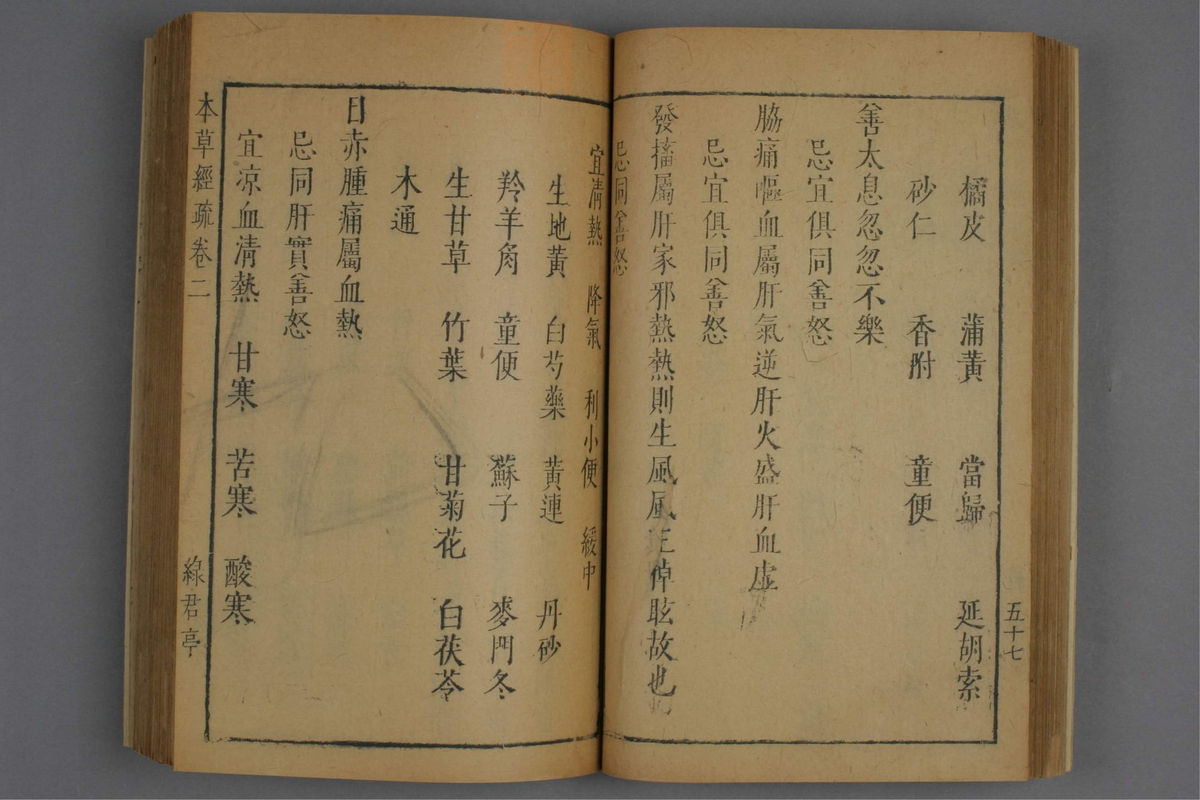 橘皮 蒲黃 當歸 延胡索
砂仁 香附 童便
善太息忽忽不樂
忌宜俱同善怒
脇痛嘔血屬肝氣逆肝火盛肝血虛
忌宜俱同善怒
發搐屬肝家邪熱熱則生風風主掉眩故也
忌同善怒
宜清熱 降氣 利小便 緩中
生地黃 白芍藥 黃連 丹砂
羚羊角 童便 蘇子 麥門冬
生甘草 竹葉 甘菊花 白茯苓
木通
目赤腫痛屬血熱
忌同肝實善怒
宜凉血清熱 甘寒 苦寒 酸寒
本草經疏卷二
綠君亭
五十七